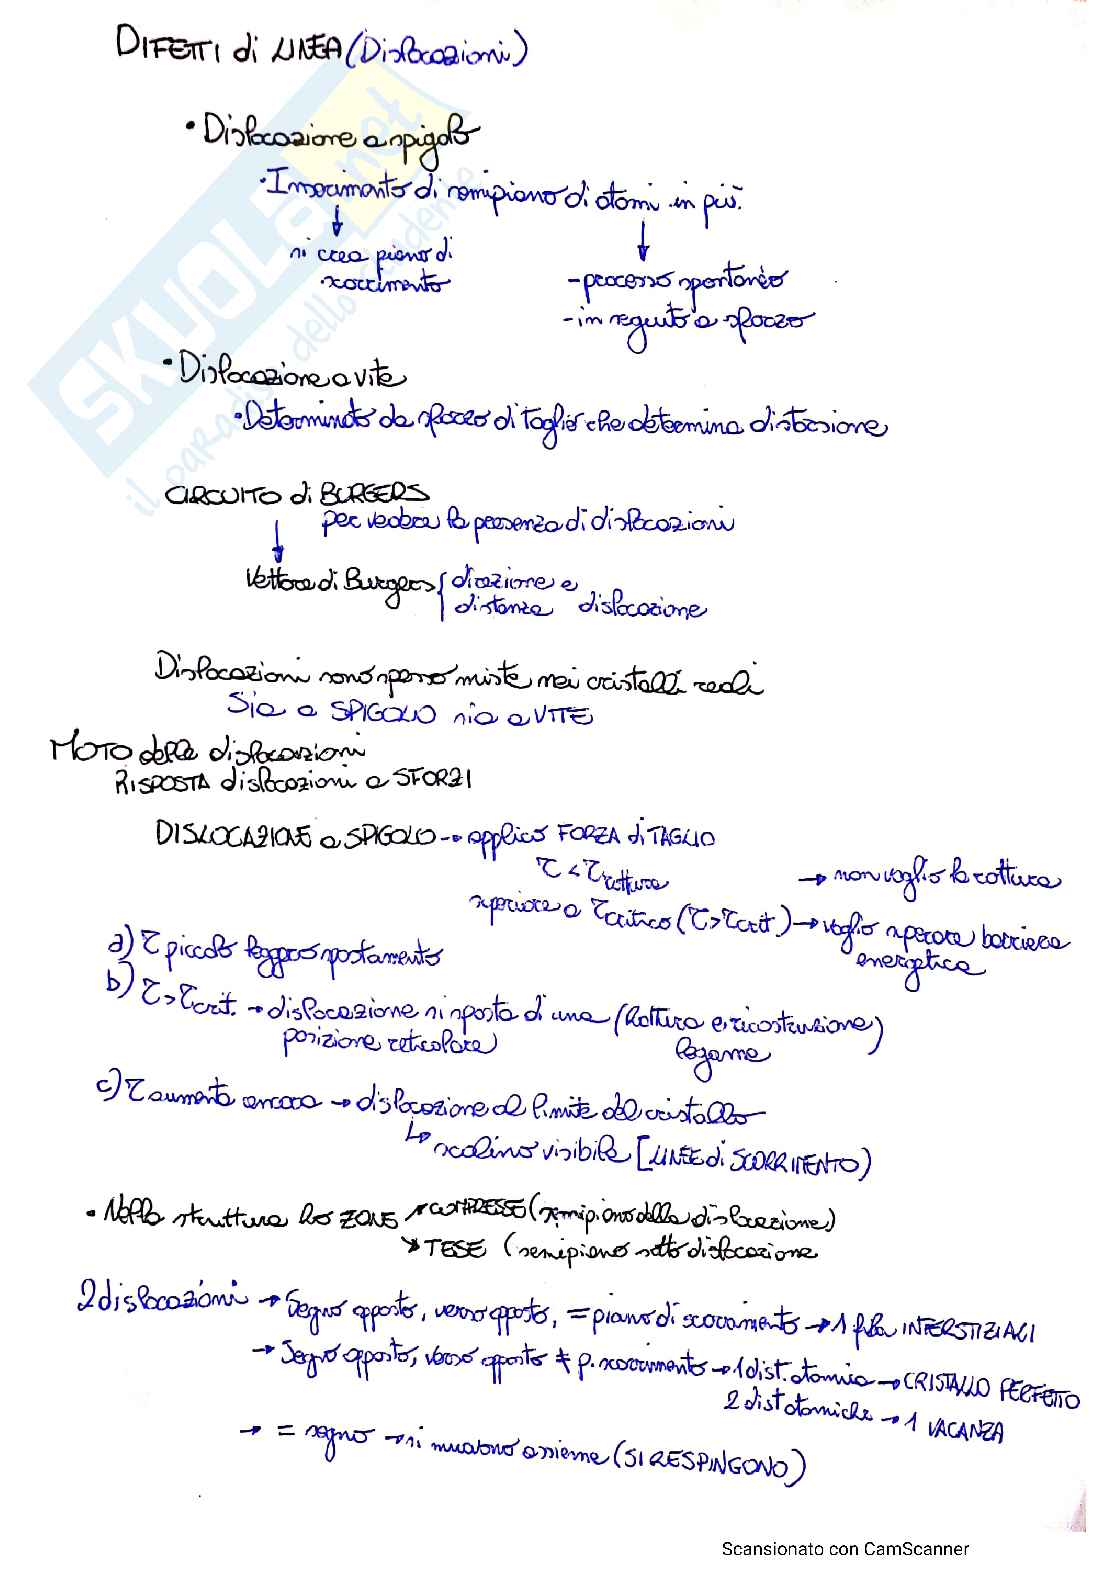 DIFETTI di LINEA (Dislocazioni)
• Dislocazione a spigolo
• Inserimento di semipiano di atomi in più.
↓ ↓
si crea piano di
scorrimento
- processo spontaneo
- in seguito a sforzo
• Dislocazione a vite
• Determinato da sforzo di taglio che determina distorsione
CIRCUITO di BURGERS
per vedere la presenza di dislocazioni
↓
Vettore di Burgers { direzione e
distanza dislocazione
Dislocazioni sono spesso miste nei cristalli reali
Sia a SPIGOLO sia a VITE
MOTO delle dislocazioni
RISPOSTA dislocazioni a SFORZI
DISLOCAZIONE a SPIGOLO → applico FORZA di TAGLIO
τ < τ rottura → non voglio la rottura
superiore a τ critico (τ > τ crit.) → voglio superare barriera
energetica
a) τ piccolo leggero spostamento
b) τ > τ crit. → dislocazione si sposta di una (Rottura e ricostruzione)
posizione reticolare legame
c) τ aumenta ancora → dislocazione al limite del cristallo
↳ scalino visibile [LINEE di SCORRIMENTO)
• Nella struttura ho ZONE ↗ COMPRESSE (semipiano della dislocazione)
↘ TESE (semipiano sotto dislocazione
2 dislocazioni → Segno opposto, verso opposto, = piano di scorrimento → 1 fila INTERSTIZIALI
→ Segno opposto, verso opposto ≠ p. scorrimento → 1 dist. atomica → CRISTALLO PERFETTO
2 dist atomiche → 1 VACANZA
→ = segno → si muovono assieme (SI RESPINGONO)
SKUOLA.net
il paradiso dello studente
Scansionato con CamScanner